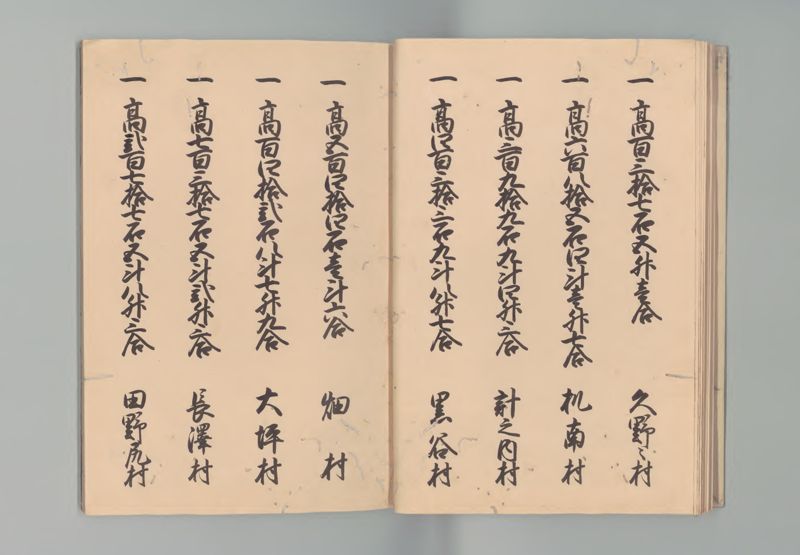 一 高百三拾七石五升壱合 久野々村
一 高六百八拾五石四斗壱升七合 机南村
一 高三百九拾九石九斗四升三合 計之内村
一 高四百三拾三石九斗八升七合 黒谷村
一 高五百四拾四石壱斗六合 畑村
一 高百四拾弐石八斗七升九合 大坪村
一 高七百三拾七石五斗弐升三合 長澤村
一 高弐百七拾七石五斗八升三合 田野尻村